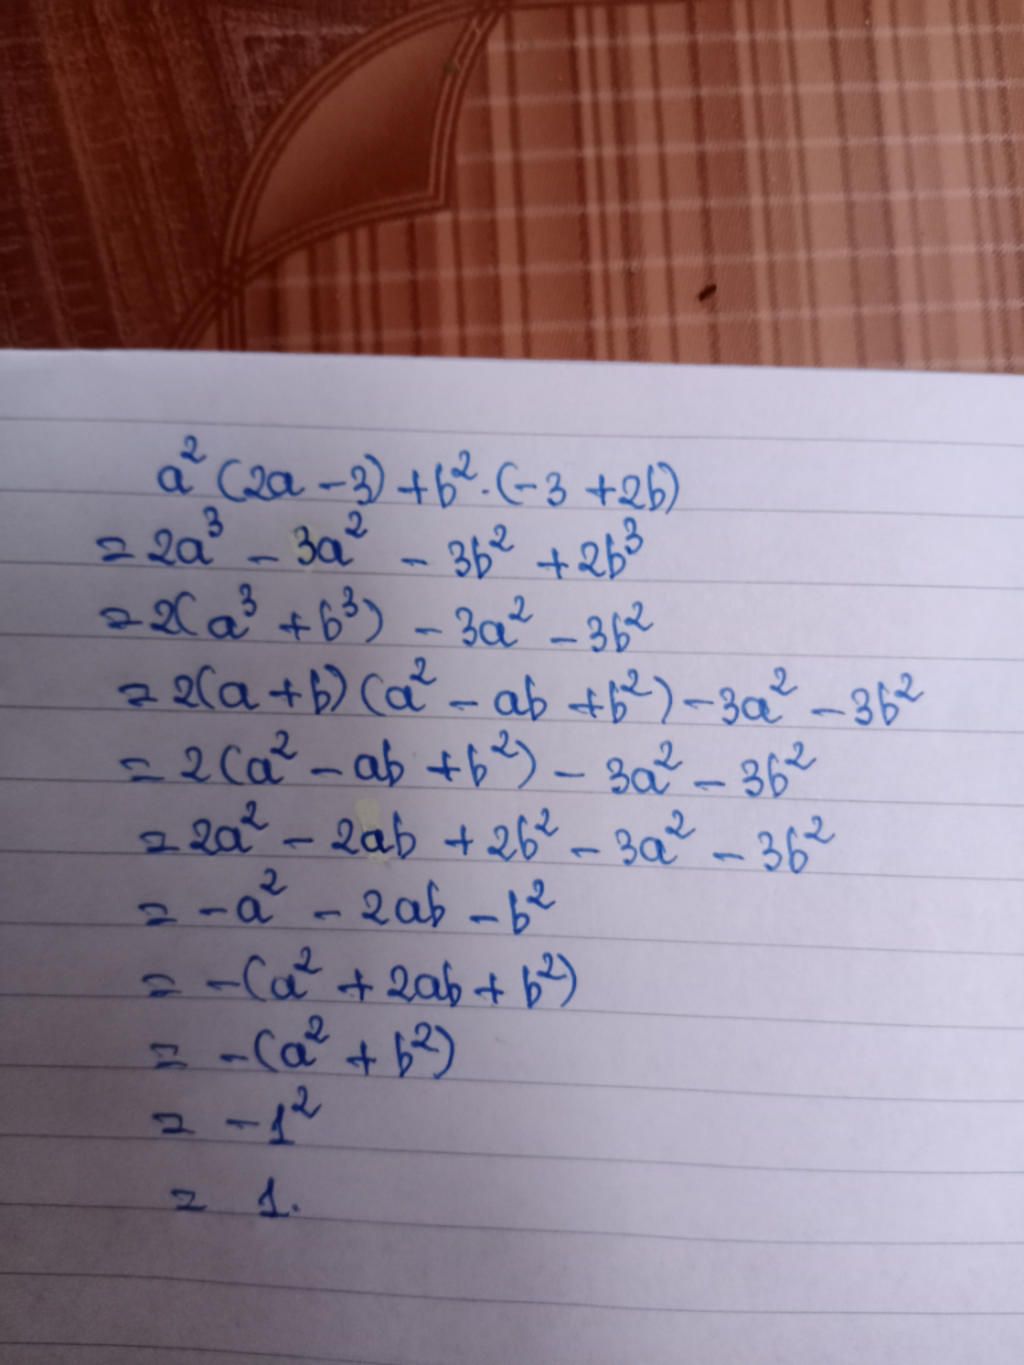 a² (2a - 3) + b² . (-3 + 2b)
= 2a³ - 3a² - 3b² + 2b³
= 2(a³ + b³) - 3a² - 3b²
= 2(a + b) (a² - ab + b²) - 3a² - 3b²
= 2(a² - ab + b²) - 3a² - 3b²
= 2a² - 2ab + 2b² - 3a² - 3b²
= -a² - 2ab - b²
= -(a² + 2ab + b²)
= -(a² + b²)
= -1²
= 1.